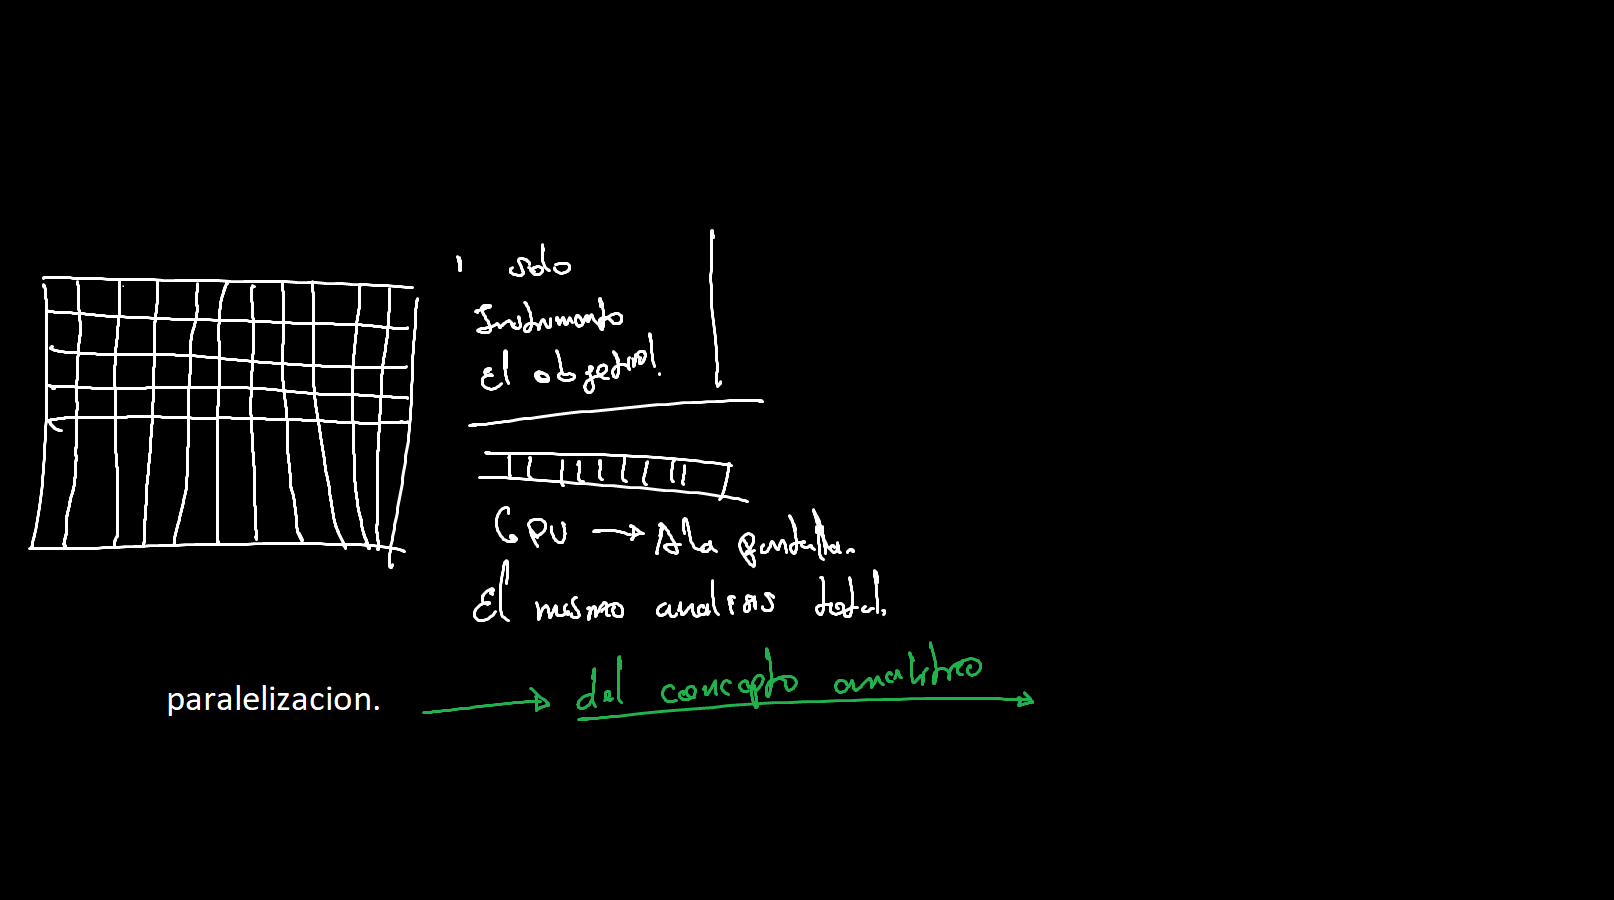 1 solo
Instrumento
El objetivo!
GPU → A la pantalla.
El mismo analisis total.
paralelizacion. → del concepto analitico